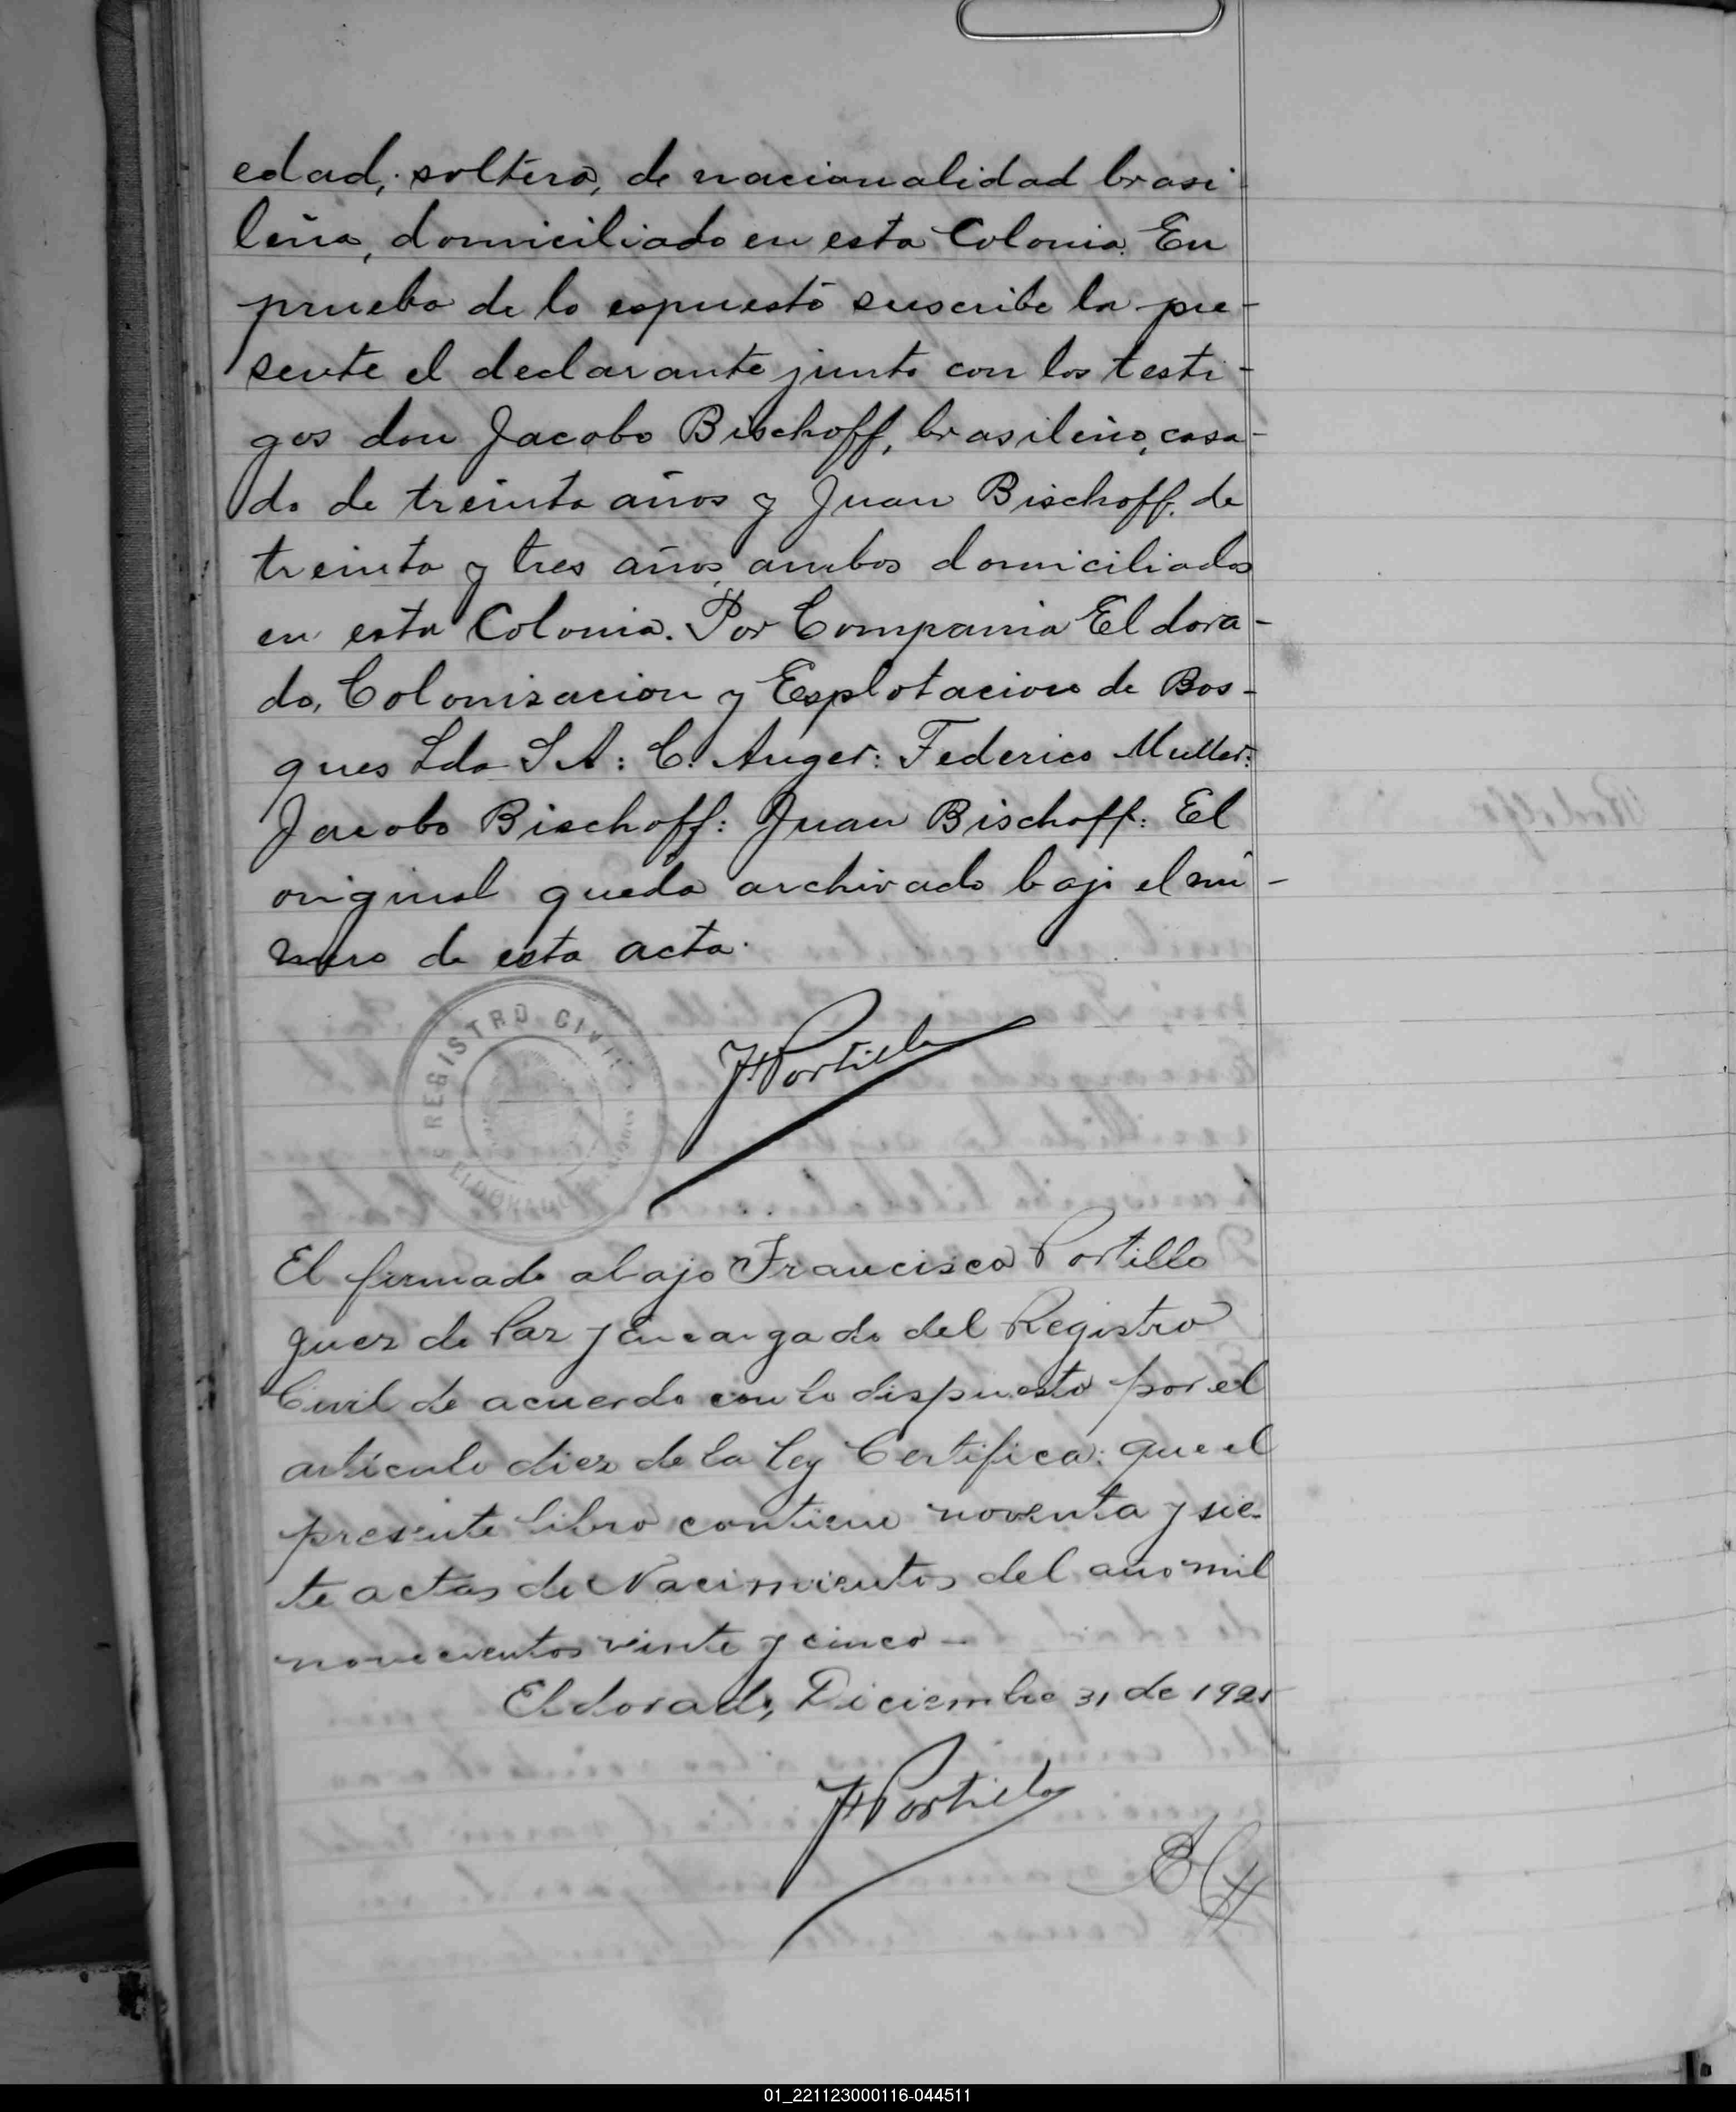 edad, soltero, de nacionalidad brasi-
leña, domiciliado en esta Colonia. En
prueba de lo espuesto suscribe la pre-
sente el declarante junto con los testi-
gos don Jacobo Bischoff, brasileño, casa-
do de treinta años y Juan Bischoff, de
treinta y tres años, ambos domiciliados
en esta Colonia. Por Compañia Eldora-
do, Colonizacion y Esplotacion de Bos-
ques Lda S A: C. Auger: Federico Muller:
Jacobo Bischoff: Juan Bischoff: El
original queda archivado bajo el nú-
mero de esta acta.
REGISTRO CIVIL
ELDORADO
F Portillo
El firmado abajo Francisco Portillo
Juez de Paz y Encargado del Registro
Civil de acuerdo con lo dispuesto por el
articulo diez de la Ley Certifica: que el
presente libro contiene noventa y sie-
te actas de Nacimientos del año mil
novecientos veinte y cinco—
Eldorado, Diciembre 31 de 1925
F Portillo
01_221123000116-044511